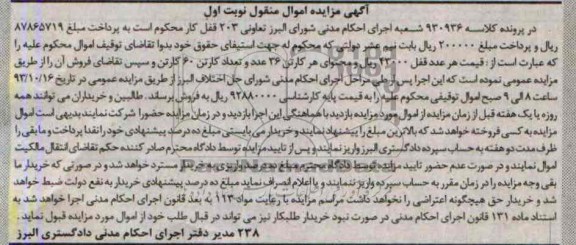 آگهی مزایده اموال منقول نوبت اول
در پرونده کلاسه ۹۳۰۹۳۶ شعبه اجرای احکام مدنی شورای البرز تعاونی ۲۰۳ قفل کار محکوم است به پرداخت مبلغ ۸۷۸۶۵۷۱۹
ریال و پرداخت مبلغ ۲۰۰۰۰۰ ریال بابت نیم عشر دولتی که محکوم له جهت استیفای حقوق خود بدوا تقاضای توقیف اموال محکوم علیه را
که عبارت است از : قیمت هر عدد قفل ۴۳۰۰۰ ریال و محتوای هر کارتن ۳۶ عدد و تعداد کارتن ۶۰ کارتن و سپس تقاضای فروش آن را از طریق
مزایده عمومی نموده است که این اجرا پس از طی مراحل اجرای احکام مدنی شورای حل اختلاف البرز از طریق مزایده عمومی در تاریخ ۹۳/۱۰/۱۶
ساعت ۸ الی ۹ صبح اموال توقیفی محکوم علیه را به قیمت پایه کارشناسی ۹۲۸۸۰۰۰۰ ریال به فروش برساند. طالبین و خریداران می توانند همه
روزه یا یک هفته قبل از زمان مزایده از اموال مورد مزایده بازدید با هماهنگی این اجرا بازدید و در زمان مزایده حضورا شرکت نمایند بدیهی است اموال
مزایده به کسی فروخته خواهد شد که بالاترین مبلغ را پیشنهاد نمایند و خریدار می بایستی مبلغ ده درصد پیشنهادی خود را نقدا پرداخت و مابقی را
ظرف مدت دو هفته به حساب سپرده دادگستری البرز واریز نمایند و پس از تایید مزایده توسط دادگاه محترم صادر کننده حکم تقاضای انتقال مالکیت
اموال نمایند و در صورت عدم حضور تایید مزایده توسط دادگاه محترم مبلغ ده درصد واریزی به خریدار مسترد خواهد شد و در صورتی که خریدار ما
بقی وجه مزایده را در زمان مقرر به حساب سپرده واریز ننمایند و یا اعلام انصراف نماید مبلغ ده درصد پیشنهادی خریدار به نفع دولت ضبط خواهد
شد و خریدار حق هیچگونه اعتراضی را نخواهد داشت مراسم مزایده با رعایت مواد ۱۱۳ به بعد قانون اجرای احکام مدنی اجرا خواهد شد به
استناد ماده ۱۳۱ قانون اجرای احکام مدنی در صورت نبود خریدار طلبکار نیز می تواند در قبال طلب خود از اموال مورد مزایده قبول نماید.
۲۳۸ مدیر دفتر اجرای احکام مدنی دادگستری البرز